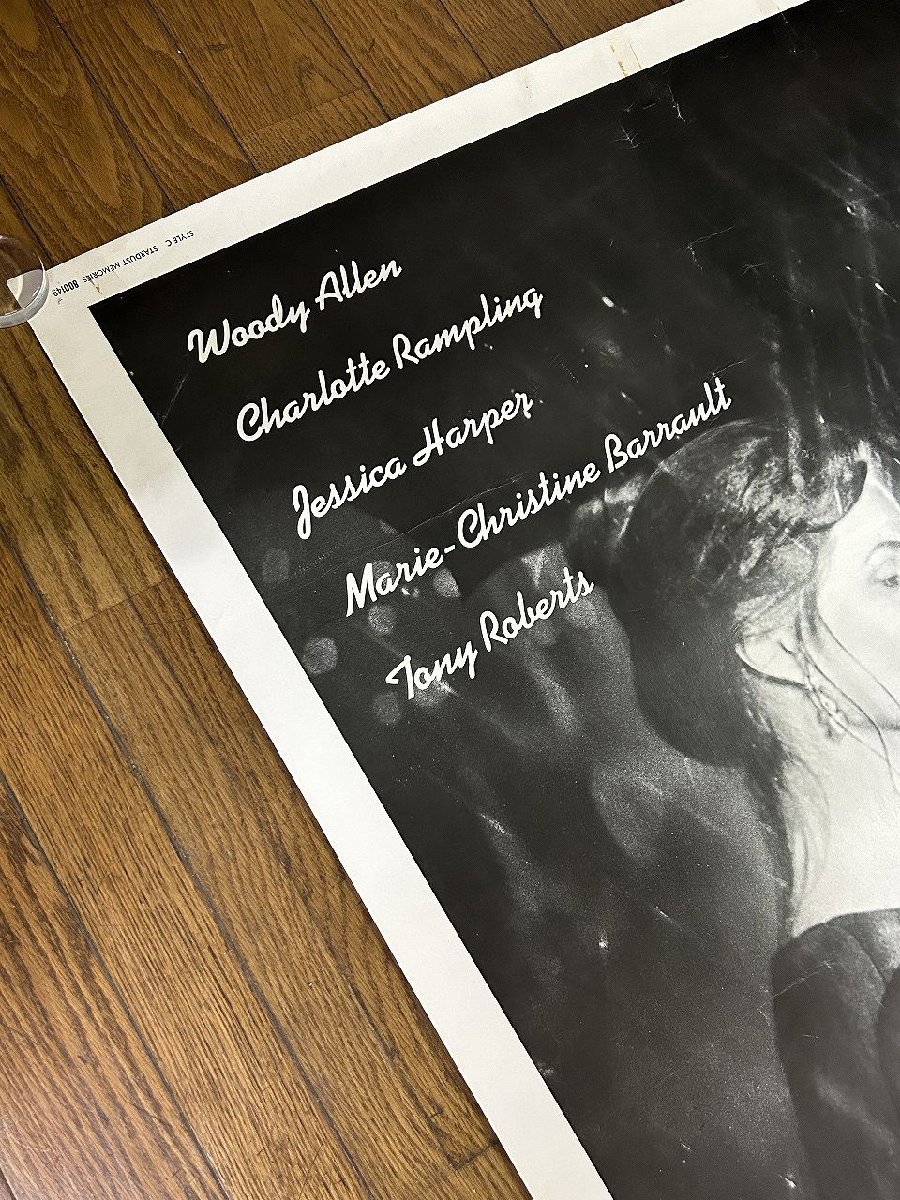 STYLE C STARDUST MEMORIES 800149
Woody Allen
Charlotte Rampling
Jessica Harper
Marie-Christine Barrault
Tony Roberts